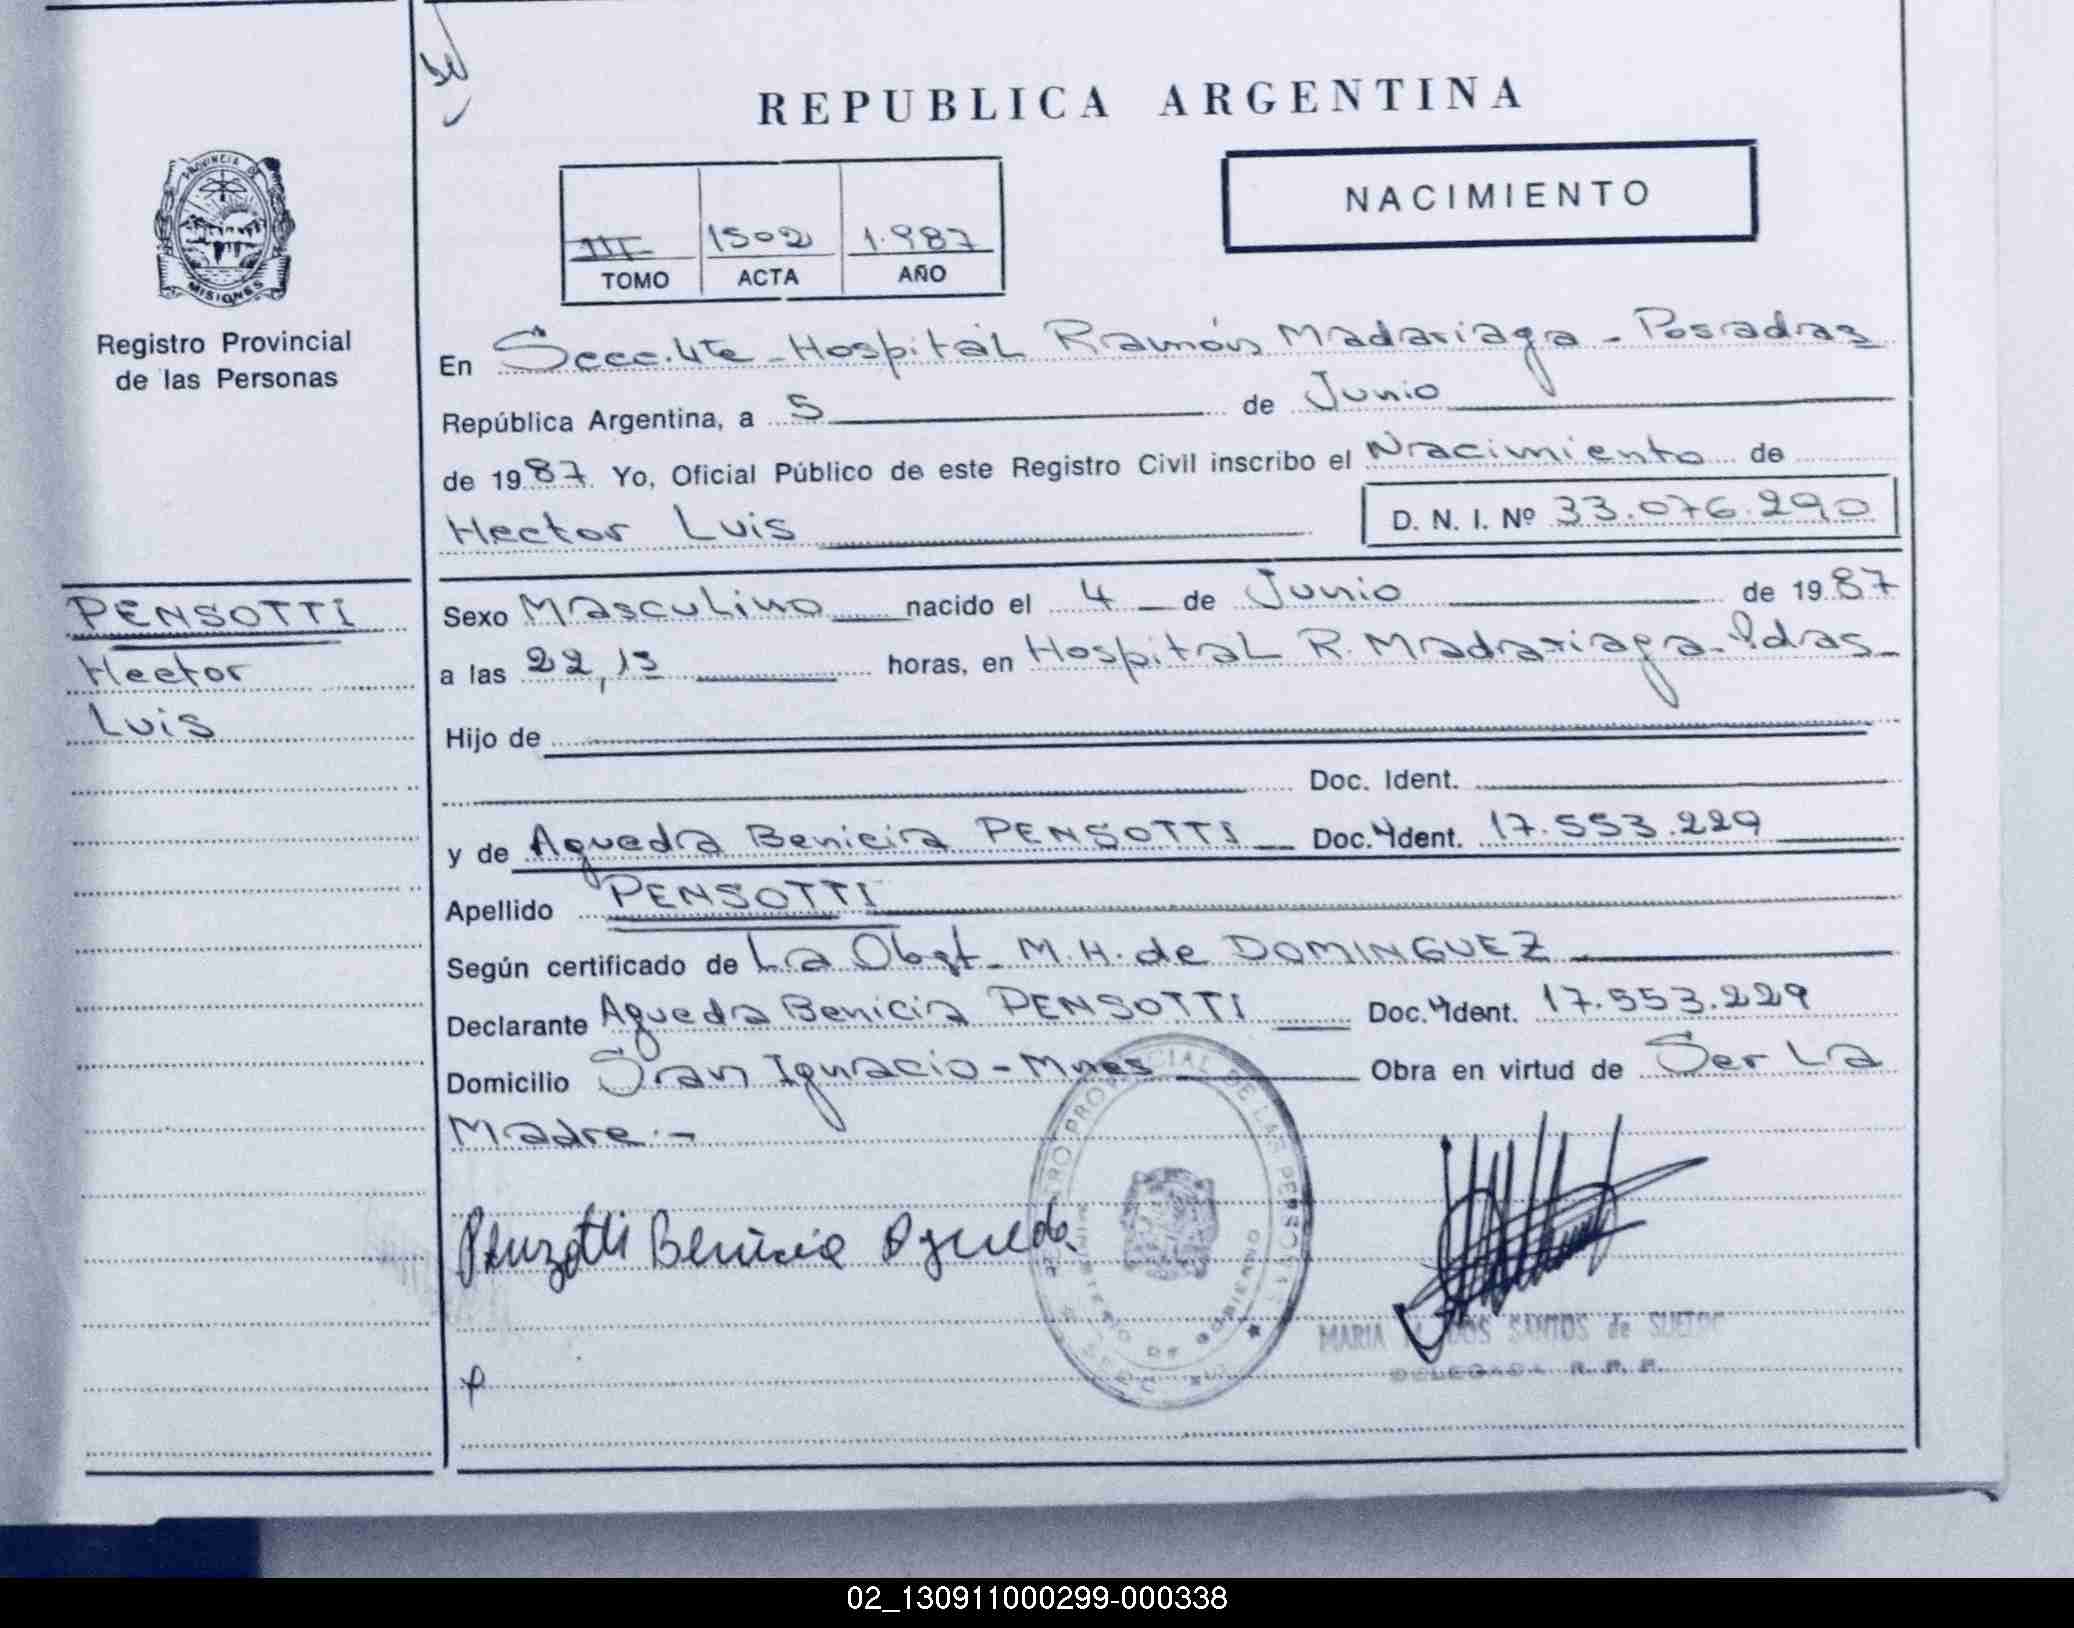 REPUBLICA ARGENTINA
NACIMIENTO
III 1502 1.987
TOMO ACTA AÑO
PROVINCIA DE
MISIONES
Registro Provincial
de las Personas
PENSOTTI
Hector
Luis
En Secc. 4te - Hospital Ramón Madariaga - Posadas
República Argentina, a 5 de Junio
de 1987. Yo, Oficial Público de este Registro Civil inscribo el Nacimiento de
Hector Luis D. N. I. Nº 33.076.290
Sexo Masculino nacido el 4 de Junio de 1987
a las 22,15 horas, en Hospital R. Madariaga - Pdas -
Hijo de
Doc. Ident.
y de Agueda Benicia PENSOTTI Doc. Ident. 17.553.229
Apellido PENSOTTI
Según certificado de La Obst. M.H. de DOMINGUEZ
Declarante Agueda Benicia PENSOTTI Doc. Ident. 17.553.229
Domicilio San Ignacio - Mnes Obra en virtud de Ser La
Madre.-
Penzotti Benicia Agueda
REGISTRO PROVINCIAL DE LAS PERSONAS
MINISTERIO DE GOBIERNO
MARIA DOS SANTOS de
DELEGADA R. P. P.
02_130911000299-000338